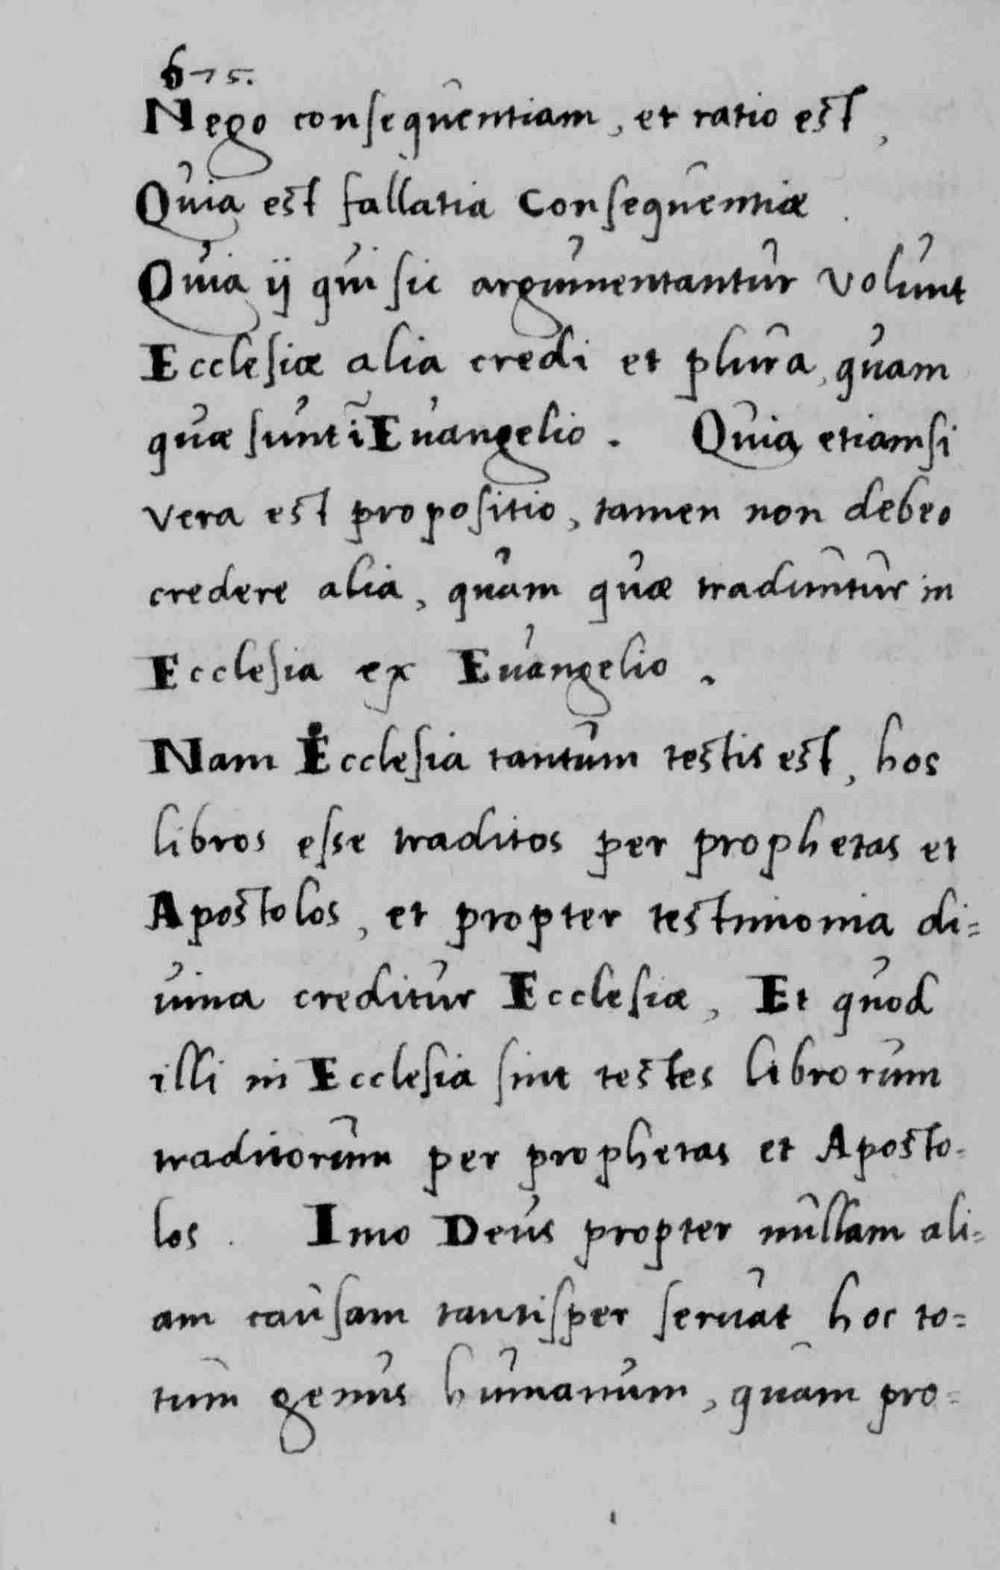 675.
Nego consequentiam, et ratio est,
Quia est fallatia Consequentiæ.
Quia ij qui sic argumentantur volunt
Ecclesiæ alia credi et plura, quam
quæ sunt ĩ Euangelio. Quia etiamsi
vera est propositio, tamen non debeo
credere alia, quam quæ traduntur in
Ecclesia ex Euangelio.
Nam Ecclesia tantum testis est, hos
libros esse traditos per prophetas et
Apostolos, et propter testimonia di=
uina creditur Ecclesiæ, Et quod
illi in Ecclesia sint testes librorum
traditorum per prophetas et Aposto-
los. Imo Deus propter nullam ali=
am causam tantisper seruat hoc to=
tum genus humanum, quam pro=